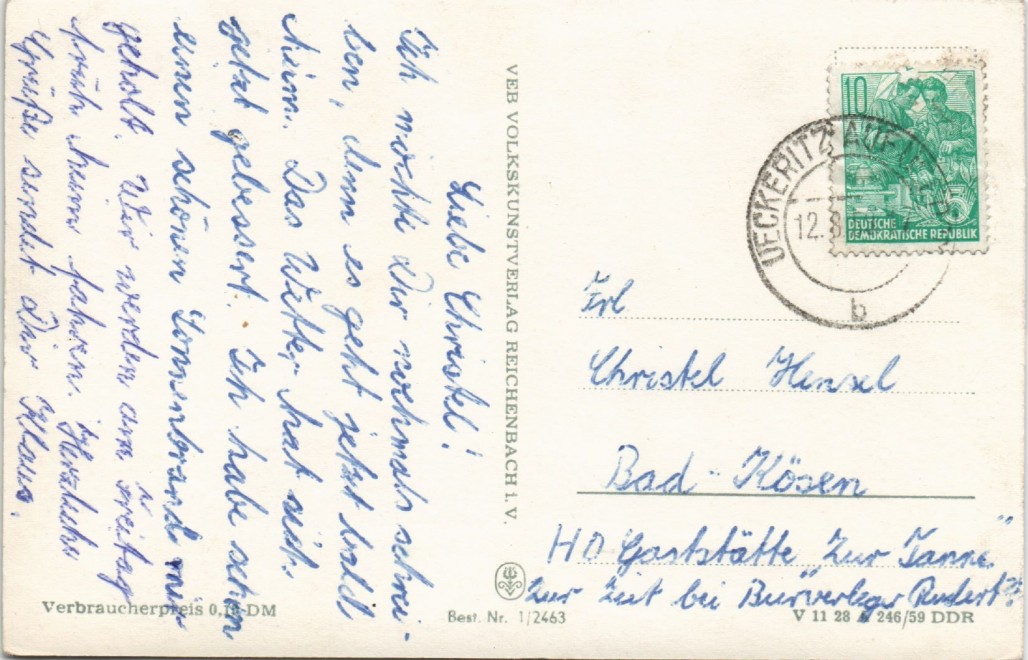 Liebe Christel!
Ich möchte Dir nochmals schrei-
ben, denn es geht jetzt bald
heim. Das Wetter hat sich
jetzt gebessert. Ich habe schon
einen schönen Sonnenbrand mir
geholt. Wir werden am Freitag
früh heim fahren. Herzliche
Grüße sendet Dir Klaus.
VEB VOLKSKUNSTVERLAG REICHENBACH i. V.
10
DEUTSCHE
DEMOKRATISCHE REPUBLIK
5
UECKERITZ AUF
12.8
b
Frl
Christel Hensel
Bad-Kösen
HO Gaststätte "Zur Tanne"
Zur Zeit bei
Verbraucherpreis 0,15 DM
Best. Nr. 1/2463
V 11 28 A 246/59 DDR